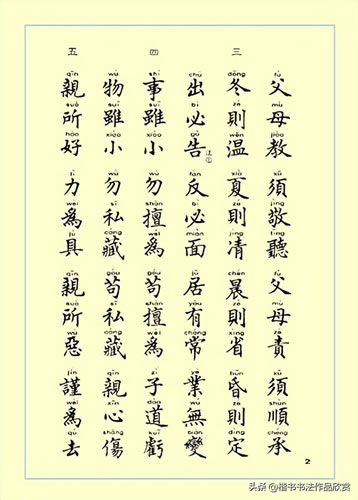 父母教須敬聽父母責須順承
fù mǔ jiào xū jìng tīng fù mǔ zé xū shùn chéng
三
冬則温夏則凊晨則省昏則定
dōng zé wēn xià zé jìng chén zé xǐng hūn zé dìng
出必告注①反必面居有常業無變
chū bì gù fǎn bì miàn jū yǒu cháng yè wú biàn
四
事雖小勿擅爲苟擅爲子道虧
shì suī xiǎo wù shàn wéi gǒu shàn wéi zǐ dào kuī
物雖小勿私藏苟私藏親心傷
wù suī xiǎo wù sī cáng gǒu sī cáng qīn xīn shāng
五
親所好力爲具親所惡謹爲去
qīn suǒ hào lì wèi jù qīn suǒ wù jǐn wèi qù
2
头条 @楷书书法作品欣赏